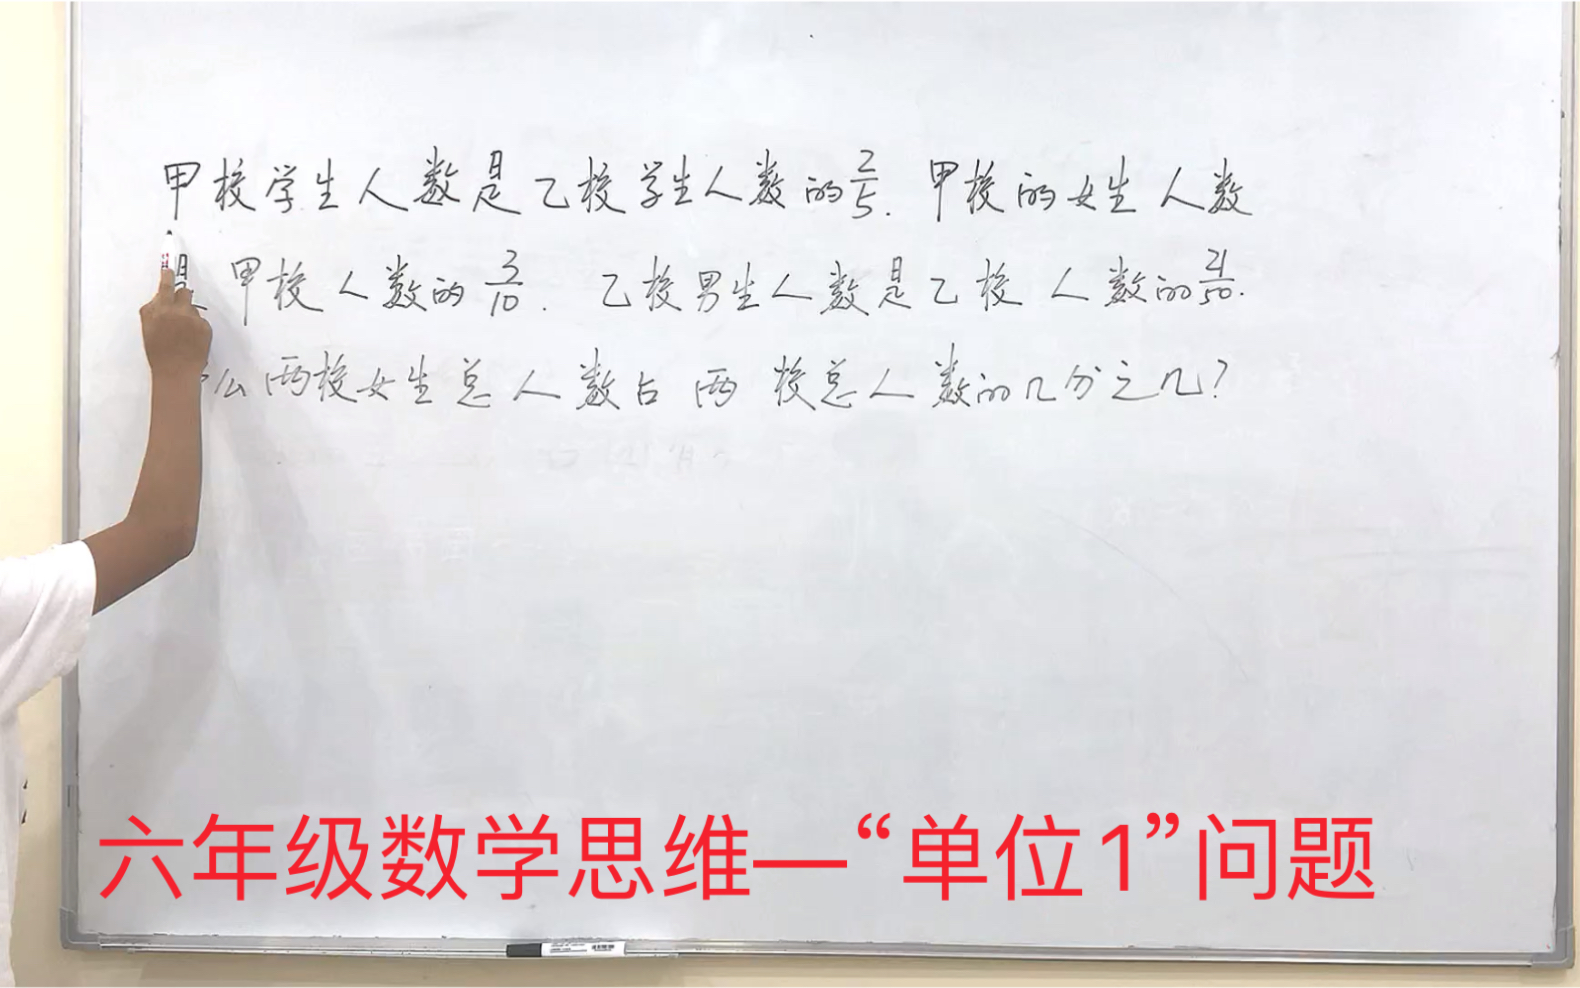 甲校学生人数是乙校学生人数的2/5. 甲校的女生人数
是 甲校人数的3/10. 乙校男生人数是乙校人数的21/50.
么两校女生总人数占两校总人数的几分之几?
六年级数学思维—“单位1”问题